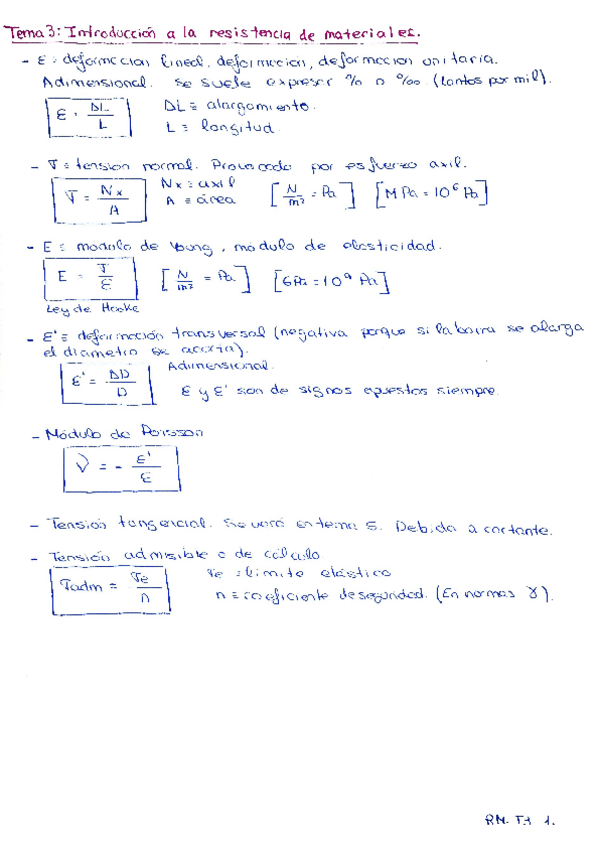 Tema 3: Introducción a la resistencia de materiales.
- ε = deformacion lineal, deformacion, deformacion unitaria.
Adimensional. Se suele expresar % o ‰ (tantos por mil).
ε = ΔL / L
ΔL ≡ alargamiento.
L ≡ longitud.
- σ = tension normal. Provocada por esfuerzo axil.
σ = Nx / A
Nx = axil
A = área
[N/m² = Pa] [MPa = 10⁶ Pa]
- E = modulo de Young, modulo de elasticidad.
E = σ / ε
[N/m² = Pa] [GPa = 10⁹ Pa]
Ley de Hooke
- ε' ≡ deformación transversal (negativa porque si la barra se alarga
el diametro se acorta).
ε' = ΔD / D
Adimensional.
ε y ε' son de signos opuestos siempre.
- Módulo de Poisson
ν = - ε' / ε
- Tension tangencial. Se verá en tema 5. Debida a cortante.
- Tensión admisible o de cálculo
σadm = σe / n
σe = límite elástico
n = coeficiente de seguridad. (En normas γ).
RM. T.1 1.